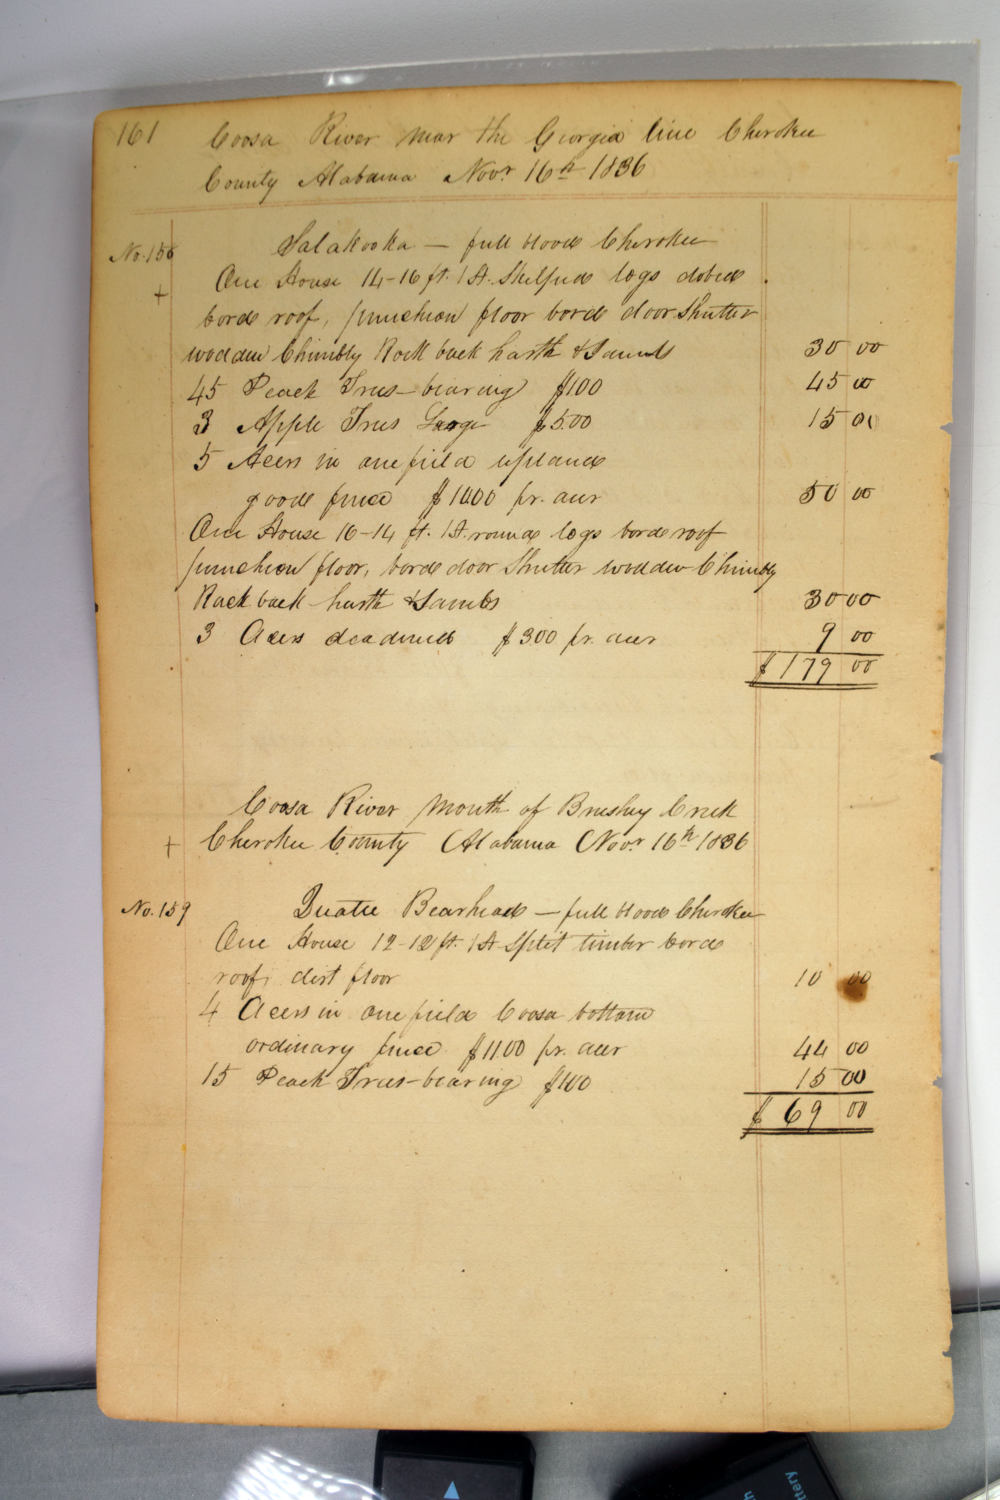 161 Coosa River near the Georgia line Cherokee
County Alabama Novr. 16th 1836
No. 156 Salakooka — full blood Cherokee
+ One House 14-16 ft. 1 St. Skelped logs dobed
bord roof, puncheon floor bord door Shutter
wodden Chimbly Rock back harth & Jambs 30 00
45 Peach Trees - bearing $1.00 45 00
3 Apple Trees Large $5.00 15 00
5 Acers in one field upland
good fence $10.00 pr. acer 50 00
One House 16-14 ft. 1 St. round logs bord roof
puncheon floor, bord door Shutter wodden Chimbly
Rock back harth & Jambs 30 00
3 Acers deadened $3.00 pr. acer 9 00
$ 179 00
Coosa River Mouth of Brushey Creek
+ Cherokee County Alabama Novr. 16th 1836
No. 159 Quatie Bearhead — full blood Cherokee
One House 12-12 ft. 1 St Split timber bord
roof, dirt floor 10 00
4 Acers in one field Coosa bottom
ordinary fence $11.00 pr. acer 44 00
15 Peach Trees - bearing $1.00 15 00
$ 69 00